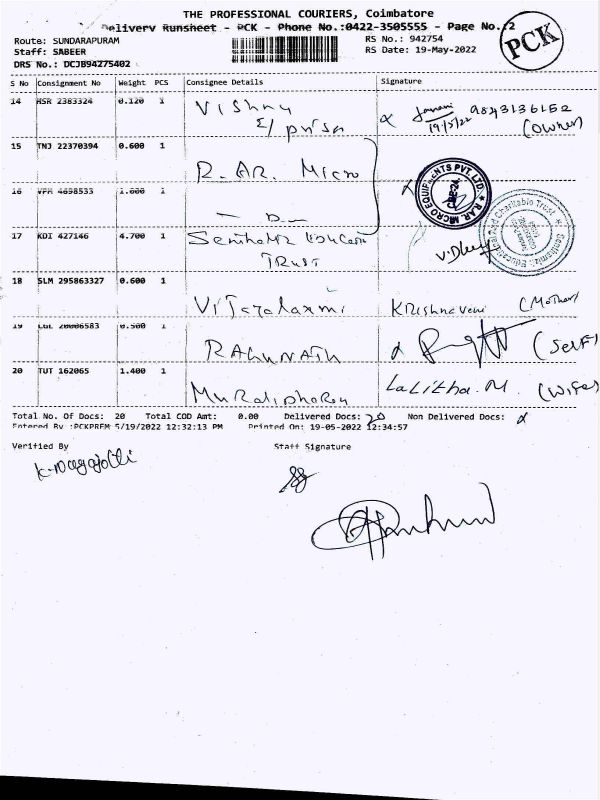 THE PROFESSIONAL COURIERS, Coimbatore
Delivery Runsheet - PCK - Phone No.:0422-3505555 - Page No.:2
PCK
Route: SUNDARAPURAM
RS No.: 942754
Staff: SABEER
RS Date: 19-May-2022
DRS No.: DCJB94275402
S No Consignment No Weight PCS Consignee Details Signature
14 HSR 2383324 0.120 1 Vishnu
19/5/22 9843136152
(owner)
15 TNJ 22370394 0.600 1
R. AR. Micro
RAR MICRO EQUIPMENTS PVT. LTD.
16 VPM 4698533 1.600 1
Educational and Charitable Trust
17 KDI 427146 4.700 1
Trust
18 SLM 295863327 0.600 1
Krishnaveni (Mother)
19 20006583 0.500 1
RAGUNATH
(Self)
20 TUT 162065 1.400 1
Lalitha.M. (wife)
Total No. Of Docs: 20 Total COD Amt: 0.00 Delivered Docs: 20 Non Delivered Docs:
Entered By :PCKPREM 5/19/2022 12:32:13 PM Printed On: 19-05-2022 12:34:57
Verified By Staff Signature